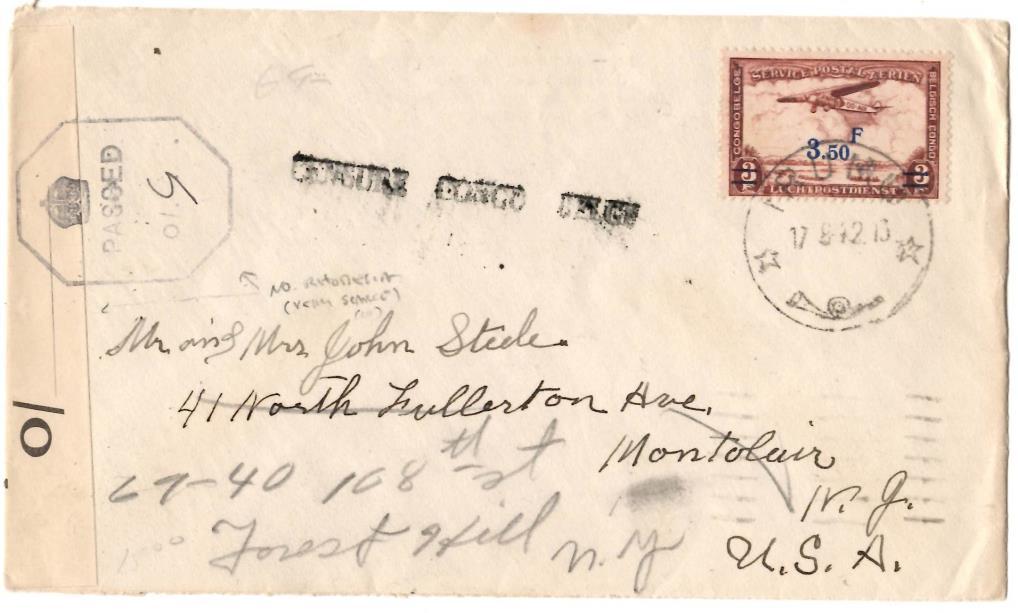 SERVICE POSTAL AÉRIEN
CONGO BELGE
BELGISCH CONGO
3.50 F
3 3
LUCHTPOSTDIENST
17 8 42
PASSED
5
CENSURE CONGO BELGE
NO. RHODESIA
(VERY SCARCE)
Mr and Mrs John Steele
41 North Fullerton Ave.
Montclair
N. J.
U. S. A.
67-40 108th st
Forest Hill N.Y